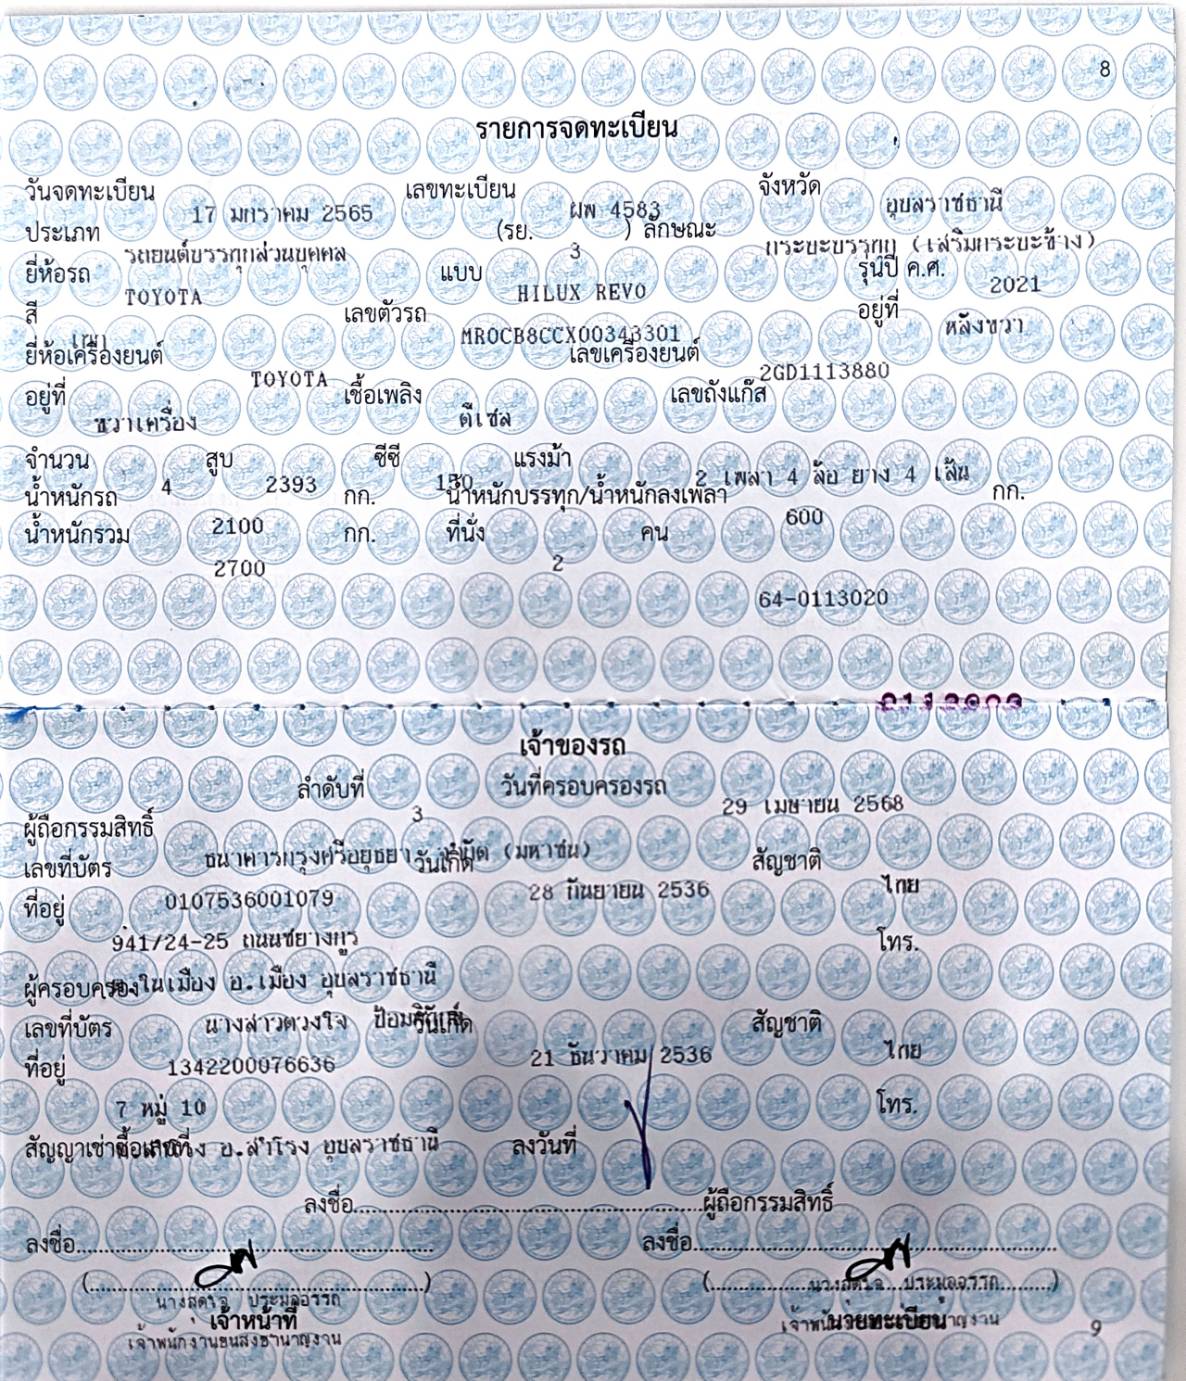 8
รายการจดทะเบียน
วันจดทะเบียน 17 มกราคม 2565 เลขทะเบียน ผพ 4583 จังหวัด อุบลราชธานี
ประเภท รถยนต์บรรทุกส่วนบุคคล (รย. 3 ) ลักษณะ กระบะบรรทุก (เสริมกระบะข้าง)
ยี่ห้อรถ TOYOTA แบบ HILUX REVO รุ่นปี ค.ศ. 2021
สี เทา เลขตัวรถ MR0CB8CCX00343301 อยู่ที่ หลังขวา
ยี่ห้อเครื่องยนต์ TOYOTA เลขเครื่องยนต์ 2GD1113880
อยู่ที่ ขวาเครื่อง เชื้อเพลิง ดีเซล เลขถังแก๊ส
จำนวน 4 สูบ 2393 ซีซี 150 แรงม้า 2 เพลา 4 ล้อ ยาง 4 เส้น
น้ำหนักรถ 2100 กก. น้ำหนักบรรทุก/น้ำหนักลงเพลา 600 กก.
น้ำหนักรวม 2700 กก. ที่นั่ง 2 คน
64-0113020
เจ้าของรถ
ลำดับที่ 3 วันที่ครอบครองรถ 29 เมษายน 2568
ผู้ถือกรรมสิทธิ์ ธนาคารกรุงศรีอยุธยา จำกัด (มหาชน)
เลขที่บัตร 0107536001079 วันเกิด 28 กันยายน 2536 สัญชาติ ไทย
ที่อยู่ 941/24-25 ถนนชยางกูร โทร.
ในเมือง อ.เมือง อุบลราชธานี
ผู้ครอบครอง นางสาวดวงใจ
เลขที่บัตร 1342200076636 วันเกิด 21 ธันวาคม 2536 สัญชาติ ไทย
ที่อยู่ 7 หมู่ 10 โทร.
อ.สำโรง อุบลราชธานี
สัญญาเช่าซื้อเลขที่ ลงวันที่
ลงชื่อ ผู้ถือกรรมสิทธิ์
ลงชื่อ ลงชื่อ
( ) ( )
นางสุดใจ ประมูลอรรถ นางสุดใจ ประมูลอรรถ
เจ้าหน้าที่ นายทะเบียน
เจ้าพนักงานขนส่งชำนาญงาน
9